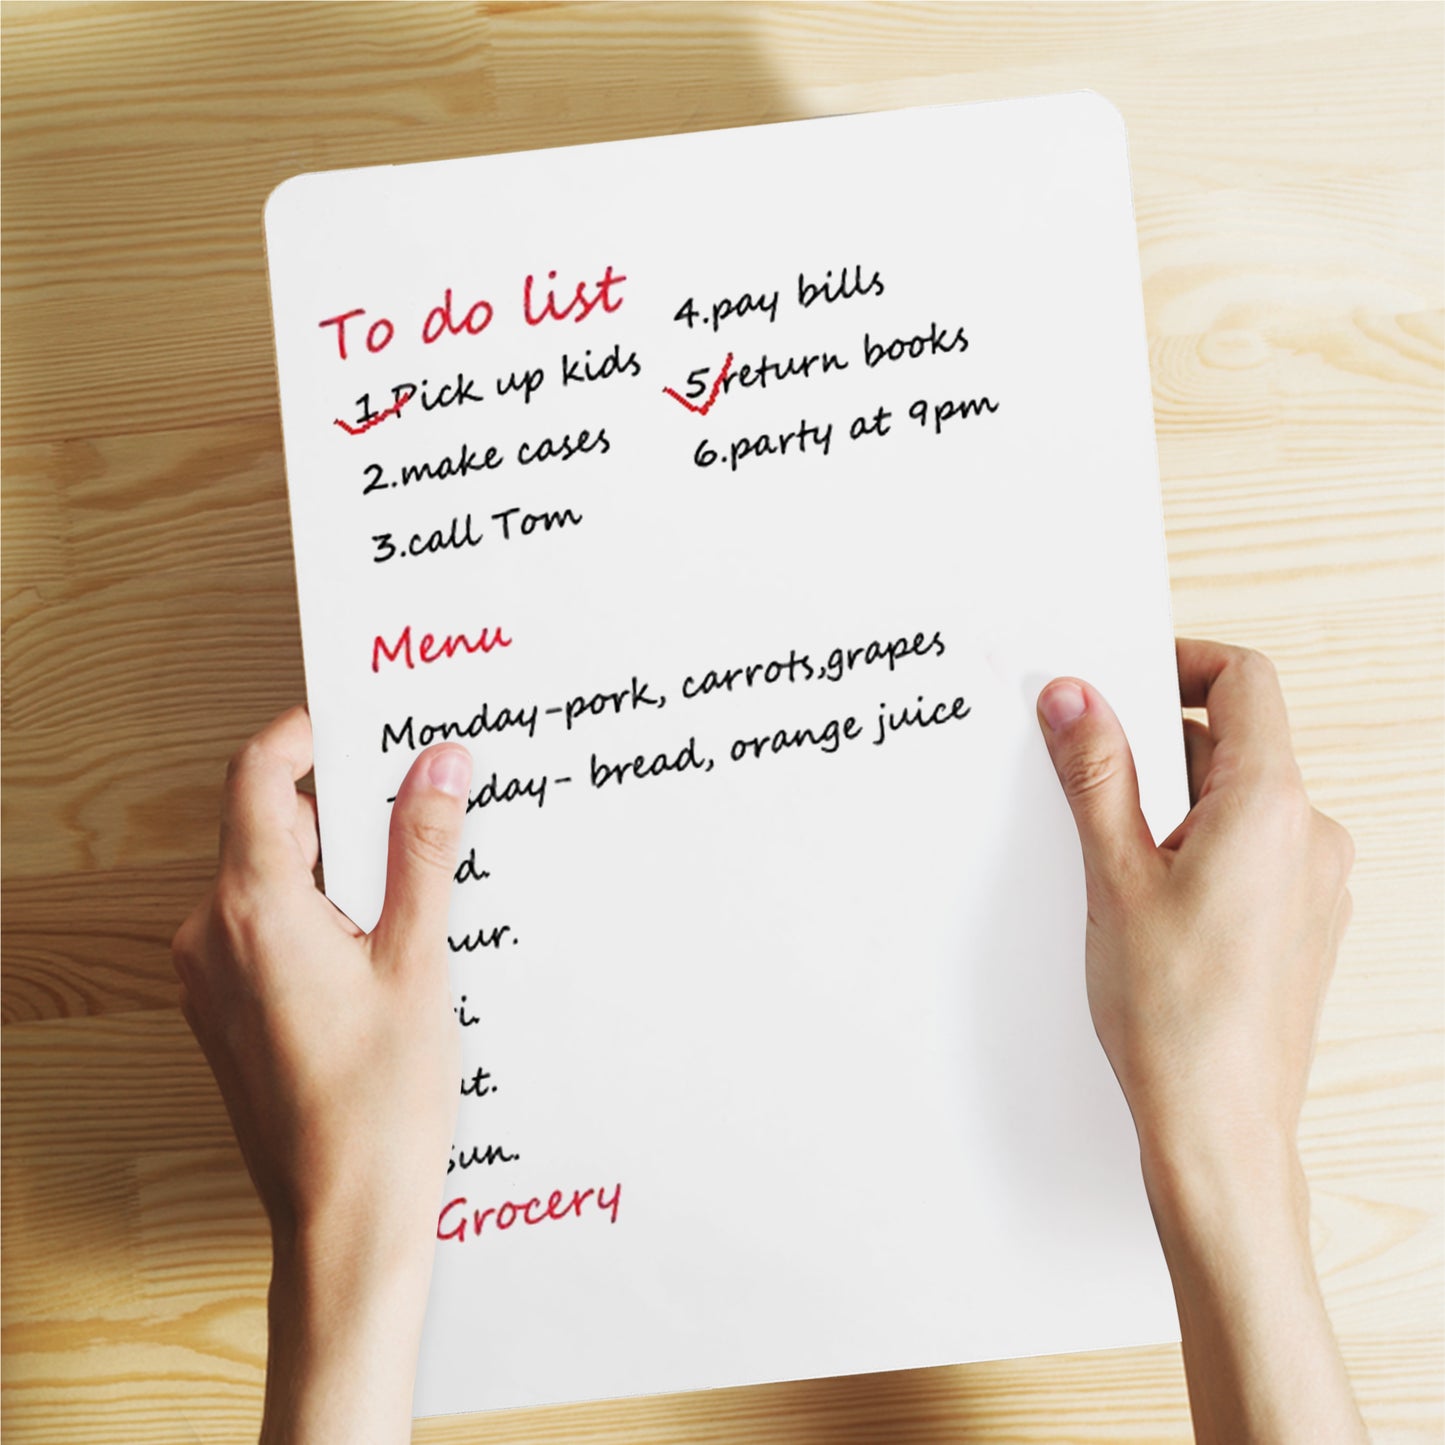 To do list
1.Pick up kids
2.make cases
3.call Tom
4.pay bills
5.return books
6.party at 9pm
Menu
Monday-pork, carrots,grapes
bread, orange juice
Sun.
Grocery